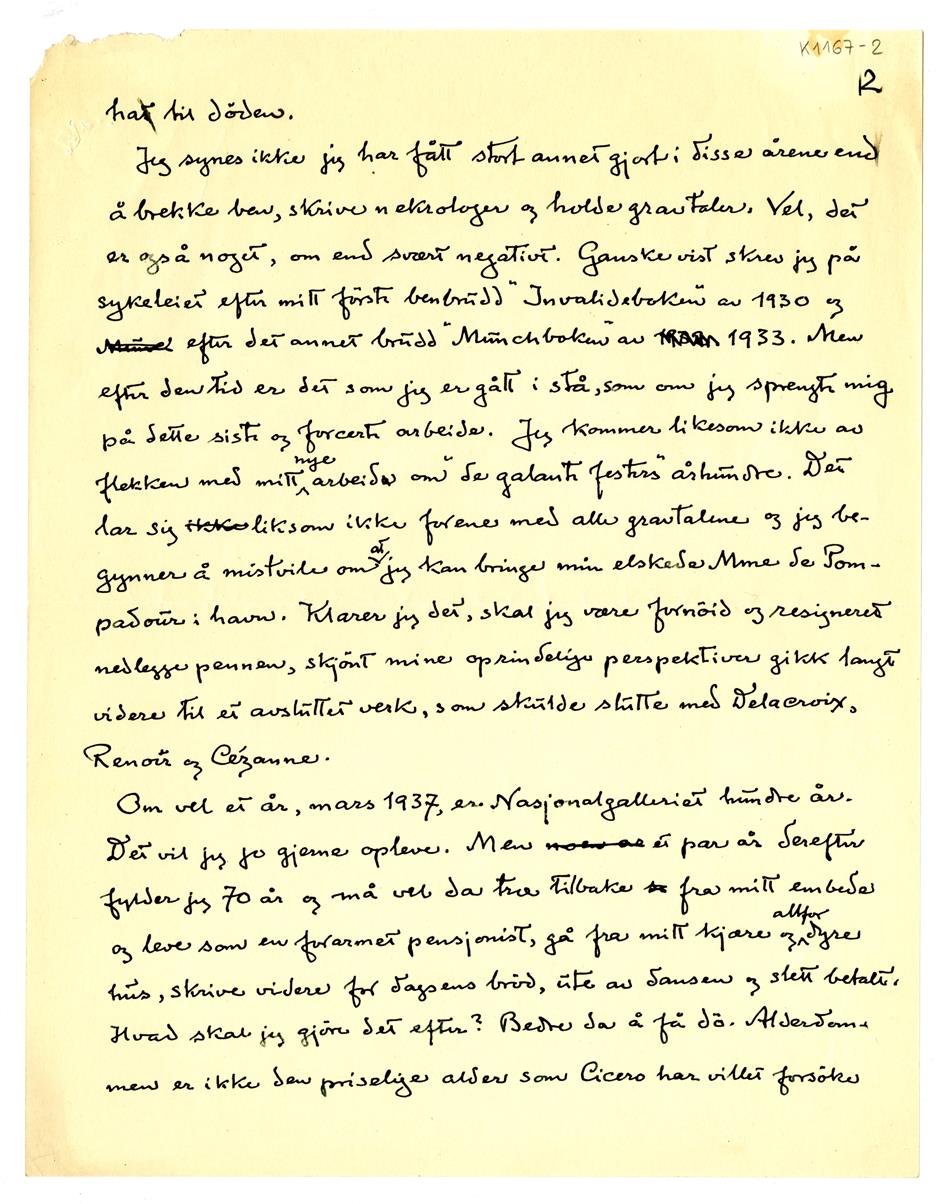 K1167-2
12
hat til döden.
Jeg synes ikke jeg har fått stort annet gjort i disse årene end
å brekke ben, skrive nekrologer og holde gravtaler. Vel, det
er også noget, om end svært negativt. Ganske vist skrev jeg på
sykeleiet efter mitt förste benbrudd "Invalideboken" av 1930 og
efter det annet brudd "Munchboken" av 1933. Men
efter den tid er det som jeg er gått i stå, som om jeg sprengte mig
på dette siste og forcerte arbeide. Jeg kommer likesom ikke av
flekken med mitt nye arbeide om "de galante festers" århundre. Det
lar sig ikke liksom ikke forene med alle gravtalene og jeg be-
gynner å mistvile om at jeg kan bringe min elskede Mme de Pom-
padour i havn. Klarer jeg det, skal jeg være fornöid og resigneret
nedlegge pennen, skjönt mine oprindelige perspektiver gikk langt
videre til et avsluttet verk, som skulde slutte med Delacroix,
Renoir og Cézanne.
Om vel et år, mars 1937, er Nasjonalgalleriet hundre år.
Det vil jeg jo gjerne opleve. Men et par år derefter
fylder jeg 70 år og må vel da træ tilbake fra mitt embede
og leve som en forarmet pensjonist, gå fra mitt kjære og altfor dyre
hus, skrive videre for dagens bröd, ute av dansen og slett betalt.
Hvad skal jeg gjöre det efter? Bedre da å få dö. Alderdom-
men er ikke den priselige alder som Cicero har villet forsöke